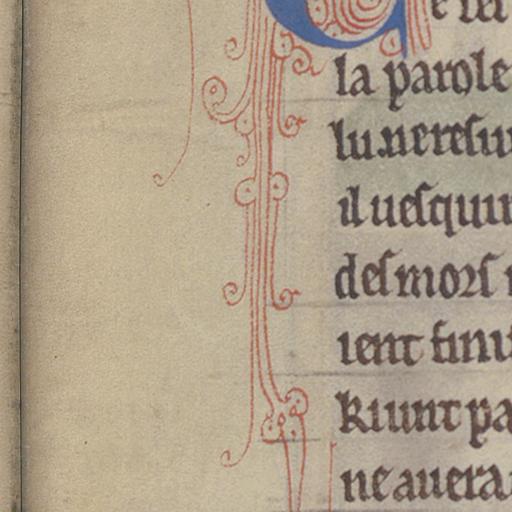 e ſei
la parole
lu.uereſiu
il ueſquir
deſ morſ
ient finu
kiunt pa
ne auera